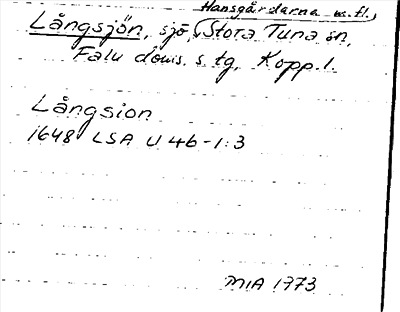 Hansgårdarna m.fl.,
Långsjön, sjö, Stora Tuna sn,
Falu doms. s. tg, Kopp. l.
Långsion
1648 LSA U 46-1:3
MIA 1773